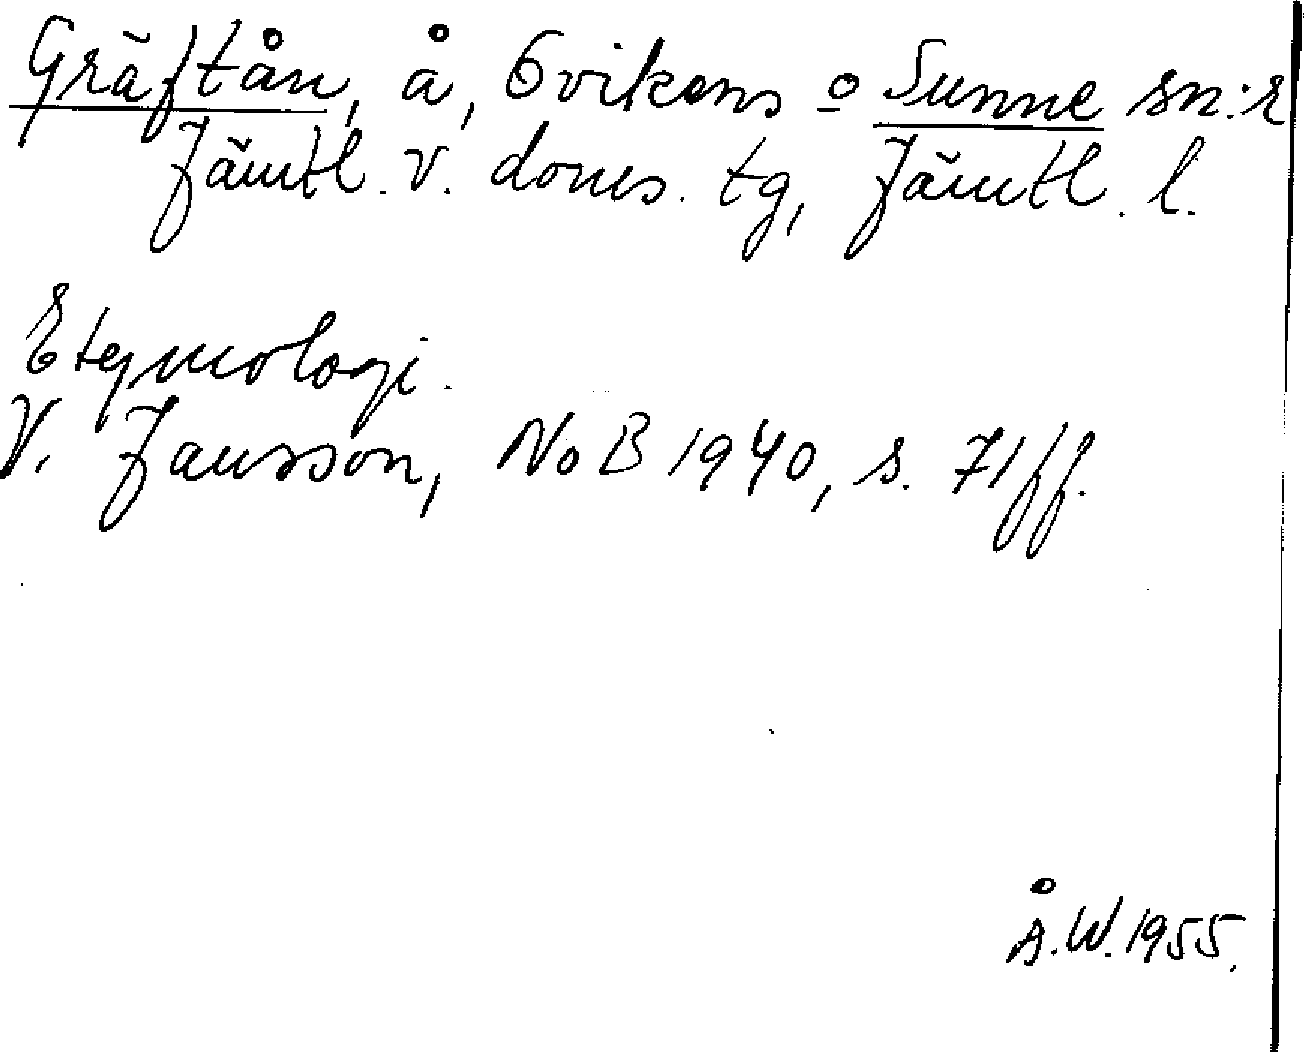 Gräftån, å, Ovikens o Sunne sn:r
Jämtl. v. doms. tg, Jämtl. l.
Etymologi.
V. Jansson, NoB 1940, s. 71ff.
Å.W. 1955.